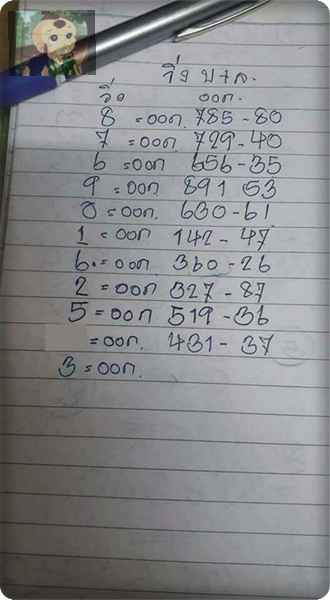 วิ่ง บน.
วิ่ง ออก.
8 = ออก. 785-80
7 = ออก. 729-40
6 = ออก 656-35
9 = ออก 891 53
0 = ออก. 630-61
1 = ออก 142-47
6. = ออก. 360-26
2 = ออก 327-87
5 = ออก 519-36
= ออก. 431-37
3 = ออก.